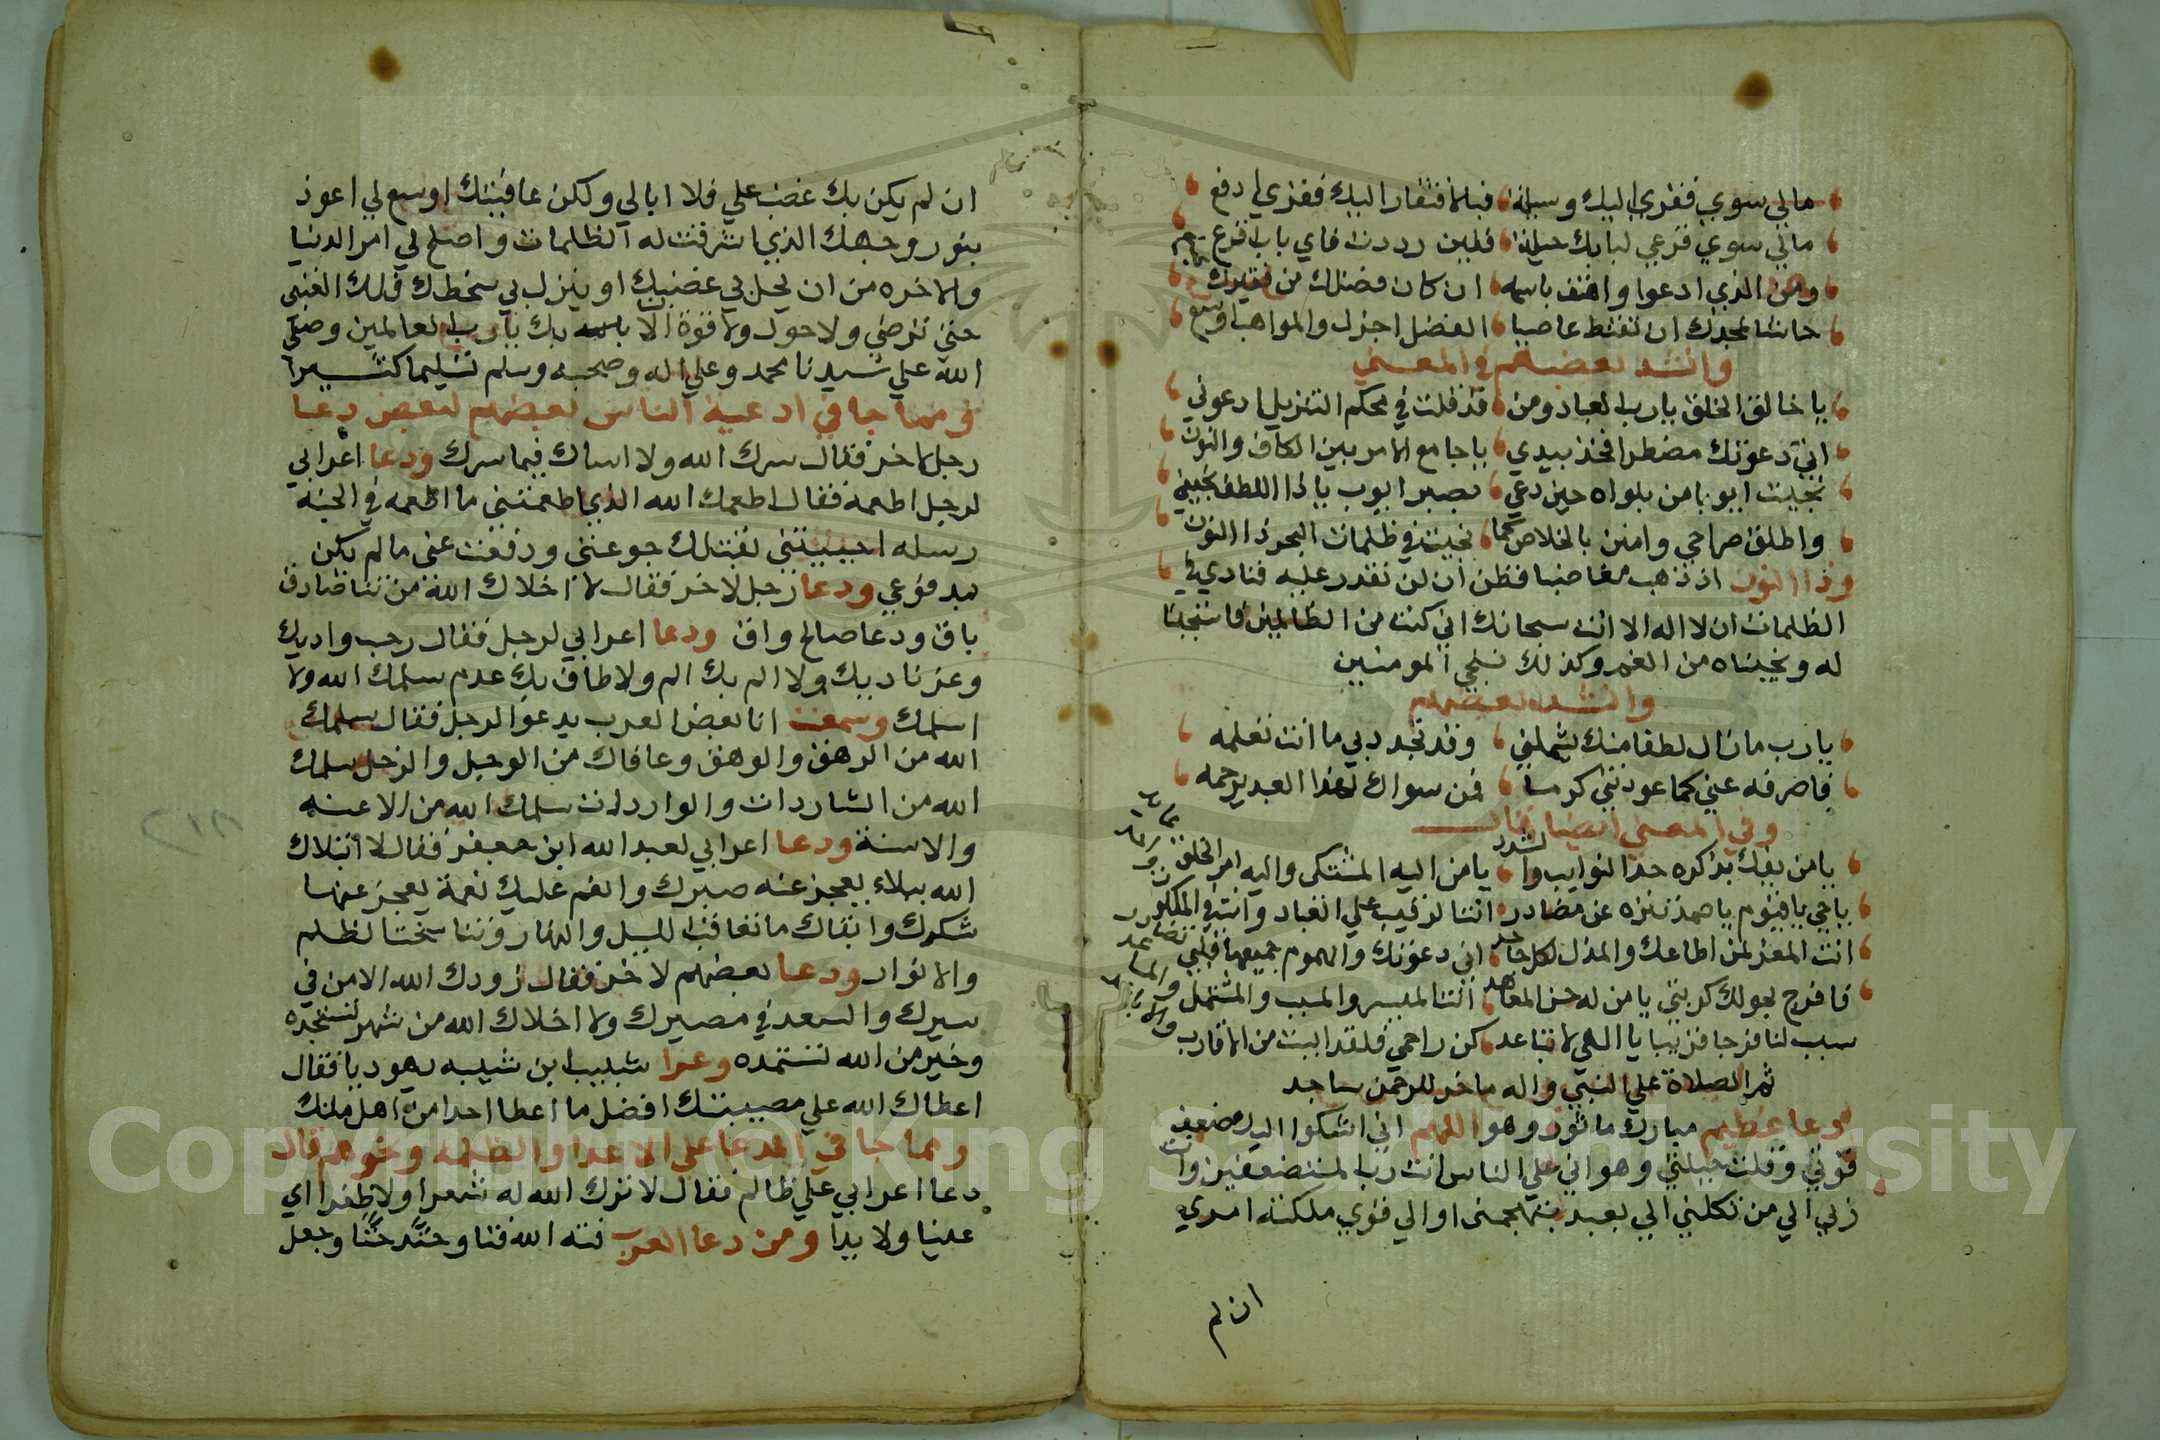 مالي سوي فقري اليك وسيلة فبالافتقار اليك فقري ادفع
مالي سوي قرعي لبابك حيلة فلين رددت فاي باب اقرع
ومن الذي ادعوا واهتف باسمه ان كان فضلك من فقيرك
حاشا لمجدك ان تقنط عاصيا الفضل اجزل والمواهب اوسع
وانشد بعضهم في المعني
يا خالق الخلق يا رب العباد ومن قد قلت في محكم التنزيل ادعوني
اني دعوتك مضطرا فخذ بيدي يا جامع الامر بين الكاف والنون
نجيت ايوبا من بلواه حين دعي بصبر ايوب يا ذا اللطف نجيني
واطلق سراحي وامنن بالخلاص كما نجيت في ظلمات البحر ذا النون
وذا النون اذ ذهب مغاضبا فظن ان لن نقدر عليه فنادي في
الظلمات ان لا اله الا انت سبحانك اني كنت من الظالمين فاستجبنا
له ونجيناه من الغم وكذلك ننجي المومنين
وانشد بعضهم
يا رب ما زال لطفا منك يشملني وقد تجدد بي ما انت تعلمه
فاصرفه عني كما عودتني كرما فمن سواك لهذا العبد يرحمه
وفي المعني ايضا قال
يا من يفك بذكره عقد النوايب والشدايد يا من اليه المشتكي واليه امر الخلق
يا حي يا قيوم يا صمد تنزه عن مضادد انت الرقيب علي العباد وانت في الملكوت
انت المعز لمن اطاعك والمذل لكل جاحد اني دعوتك والهموم جميعها قلبي
فافرج بحولك كربتي يا من له حسن انت الميسر والمسبب والمسهل
سبب لنا فرجا قريبا يا الهي لا تباعد كن راحمي فلقد ايست من الاقارب
ثم الصلاة علي النبي واله ما خر للرحمن ساجد
دعا عظيم مبارك ماثور وهو اللهم اني اشكوا اليك ضعف
قوتي وقلت حيلتي وهواني علي الناس انت رب المستضعفين وانت
ربي الي من تكلني الي بعيد يتهجمني او الي قوي ملكته امري
ان لم
ان لم يكن بك غضب علي فلا ابالي ولكن عافيتك اوسع لي اعوذ
بنور وجهك الذي اشرقت له الظلمات واصلح لي امر الدنيا
والاخره من ان يحل بي غضبك او ينزل بي سخطك فلك العتبي
حتي ترضي ولا حول ولا قوة الا بك يا رب العالمين وصلي
الله علي سيدنا محمد وعلي اله وصحبه وسلم تسليما كثيرا
ومما جا في ادعية الناس بعضهم لبعض دعا
رجل لاخر فقال سرك الله ولا اساك فيما سرك ودعا اعرابي
لرجل اطعمه فقال اطعمك الله الذي اطعمتني ما اطعمه في الجنة
رسله احييتني بقتلك جوعتي ودفعت عني ما لم يكن
بمدفوعي ودعا رجل لاخر فقال لا اخلاك الله من ثنا صادق
باق ودعا صالح واق ودعا اعرابي لرجل فقال رحب واديك
وعز ناديك ولا الم بك الم ولا طاف بك عدم سلمك الله ولا
اسلمك وسمعت انا بعض العرب يدعو لرجل فقال سلمك
الله من الرهق والوهق وعافاك من الوحل والزحل سلمك
الله من الشاردات والواردات سلمك الله من الاعنه
والاسنة ودعا اعرابي لعبد الله ابن جعفر فقال لا ابتلاك
الله ببلاء يعجز عنه صبرك وانعم عليك نعمة يعجز عنها
شكرك وابقاك ما تعاقب الليل والنهار وتناسخت الظلم
والانوار ودعا بعضهم لاخر فقال زودك الله الامن في
سيرك والسعد في مصيرك ولا اخلاك الله من شهر تستجده
وخير من الله تستمده وعزا شبيب ابن شيبه يهوديا فقال
اعطاك الله علي مصيبتك افضل ما اعطا احدا من اهل ملتك
ومما جا في الدعا علي الاعدا والظلمه ونحوهم قال
دعا اعرابي علي ظالم فقال لا ترك الله له شفرا ولا ظفرا اي
عينا ولا يدا ومن دعا العرب فته الله فتا وحته حتا وجعل